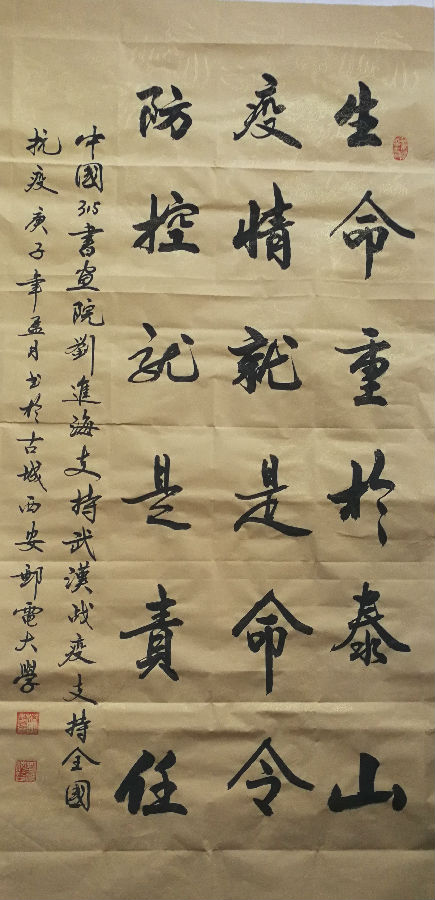 生命重於泰山
疫情就是命令
防控就是责任
中國315書画院劉進海支持武漢战疫支持全國
抗疫庚子年孟月书於古城西安邮電大學